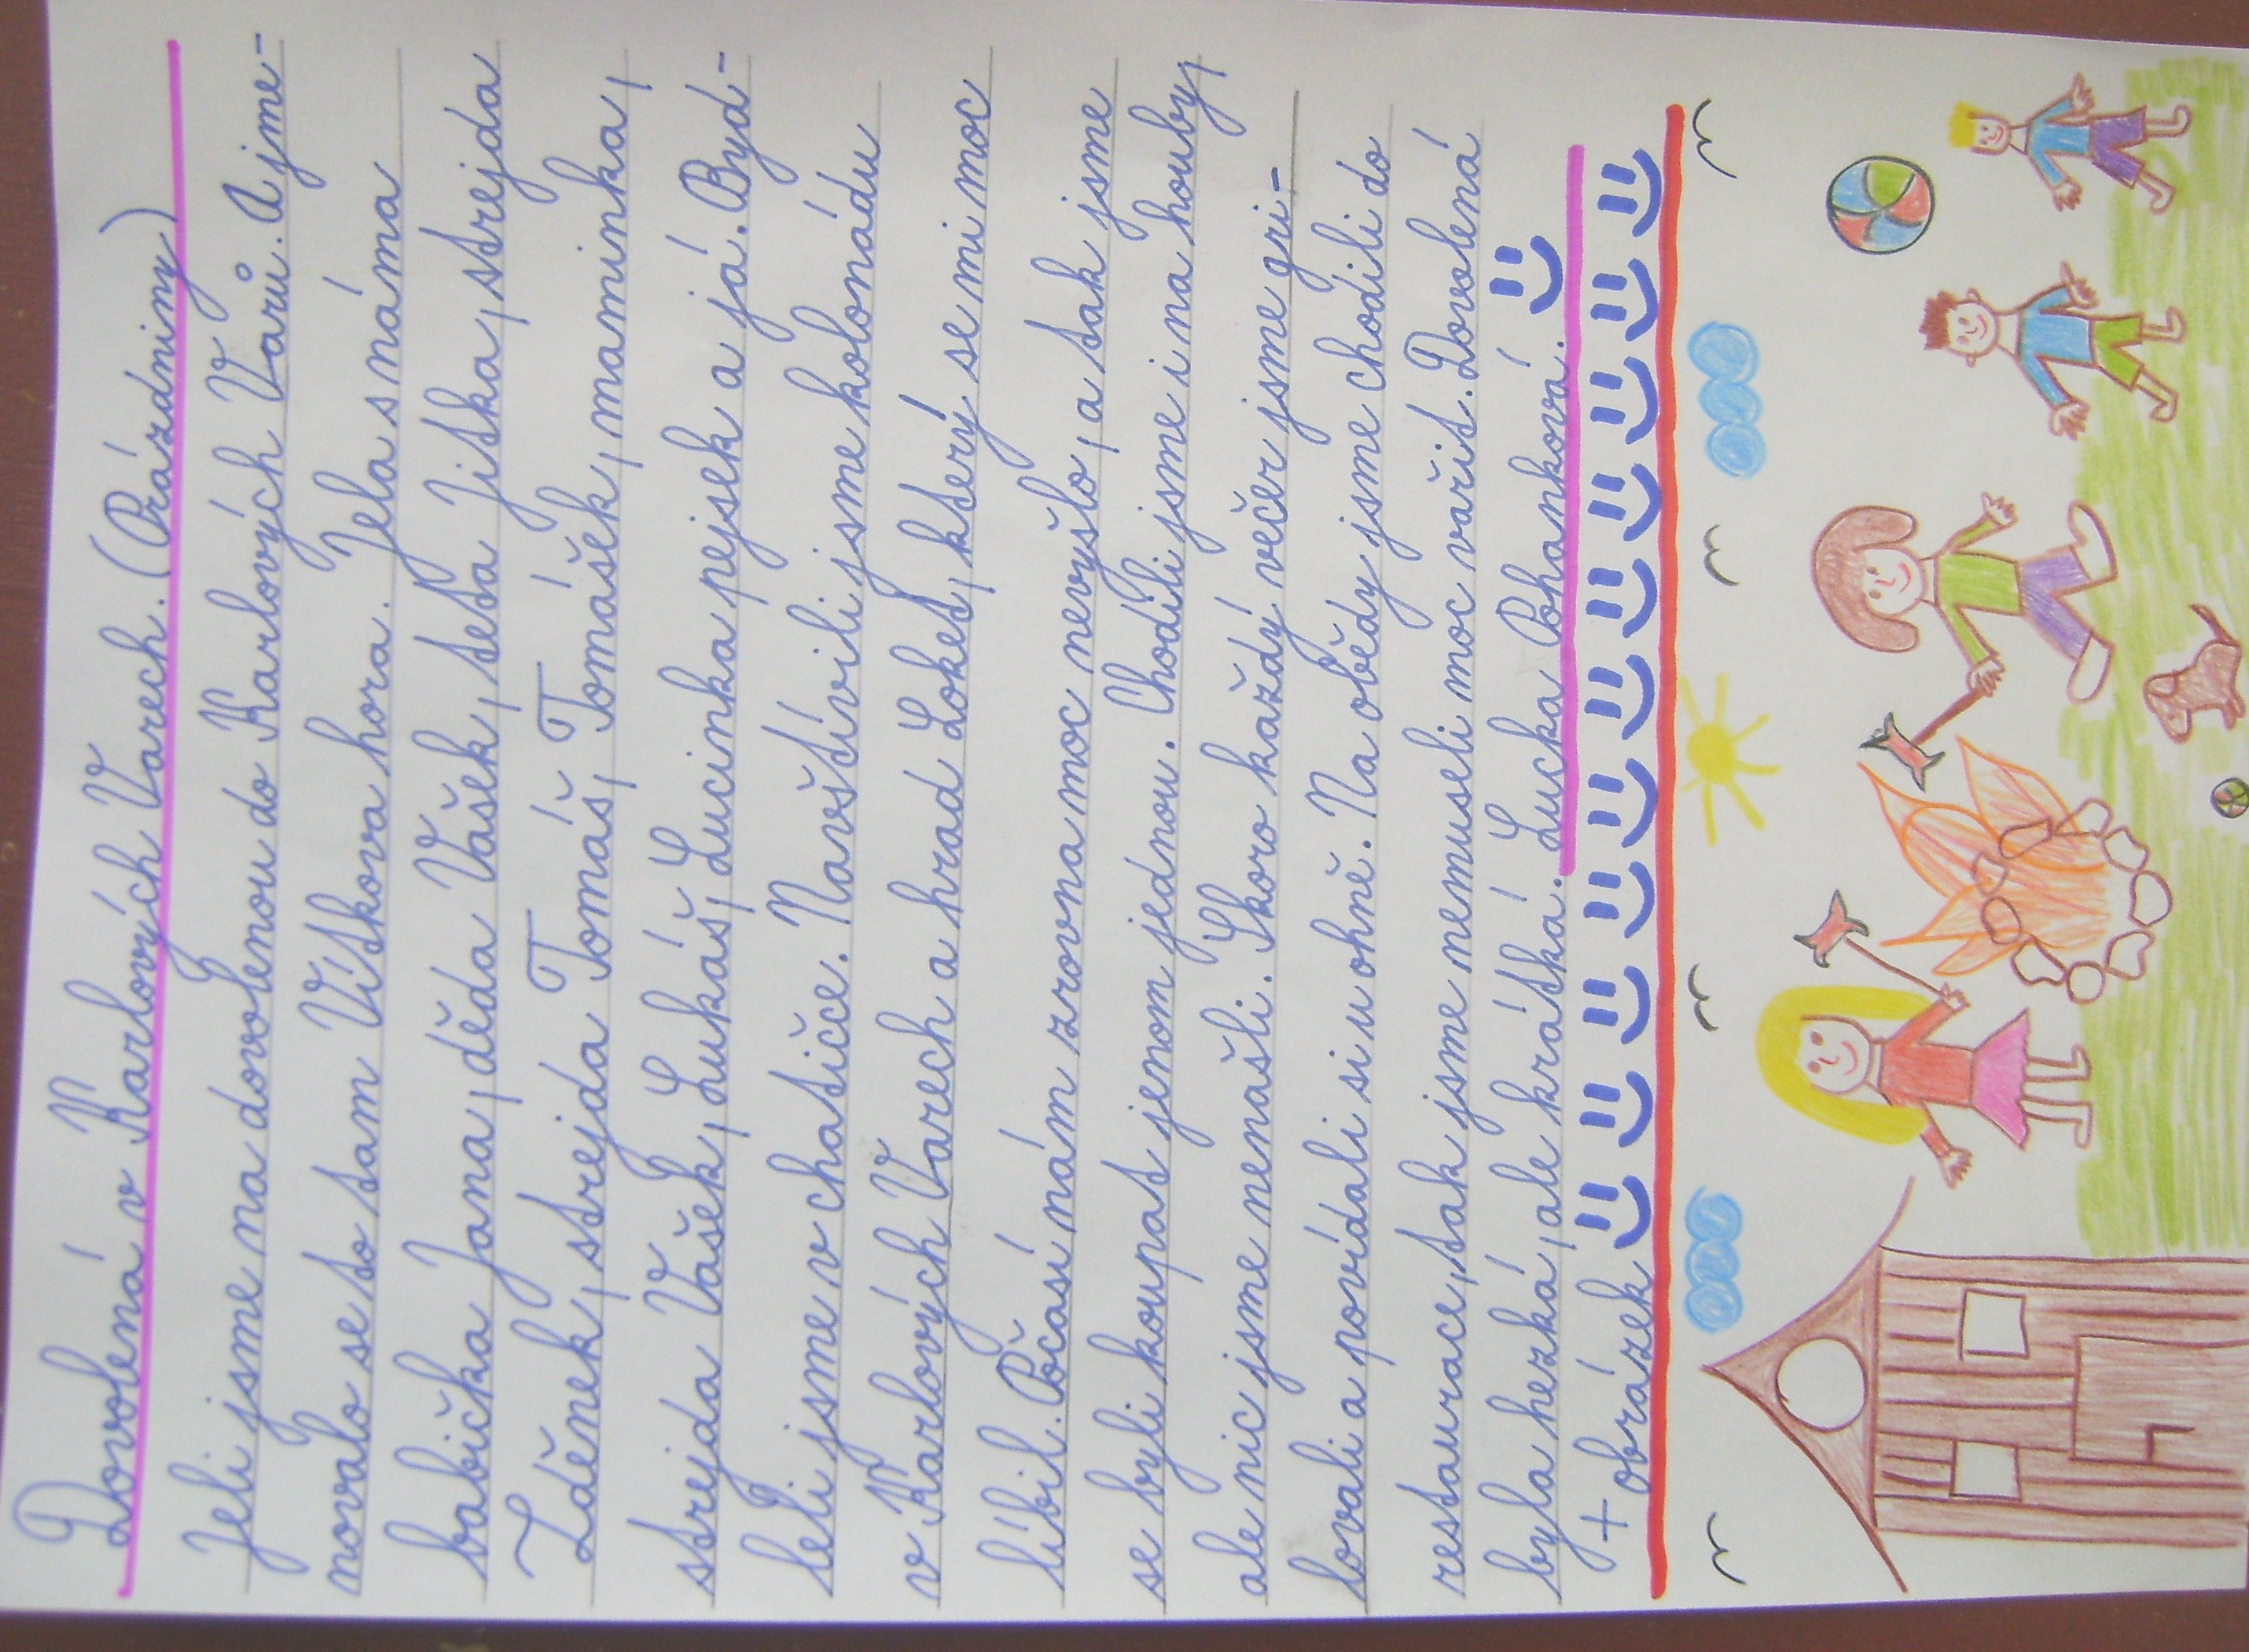 Dovolená v Karlových Varech. (Prázdniny)
Jeli jsme na dovolenou do Karlových Varů. A jme-
novalo se to tam Vítkova hora. Jela s náma
babička Jana, děda Vašek, teta Jitka, strejda
Zděnek, strejda Tomáš, Tomášek, maminka,
strejda Vašek, Lukáš, Lucinka pejsek a já. Byd-
leli jsme v chatičce. Navštívili jsme kolonádu
v Karlových Varech a hrad Loket, který se mi moc
líbil. Počasí nám zrovna moc nevyšlo, a tak jsme
se byli koupat jenom jednou. Chodili jsme i na houby,
ale nic jsme nenašli. Skoro každý večer jsme gri-
lovali a povídali si u ohně. Na obědy jsme chodili do
restaurace, tak jsme nemuseli moc vařit. Dovolená
byla hezká, ale krátká. Lucka Pohanková.
+ obrázek